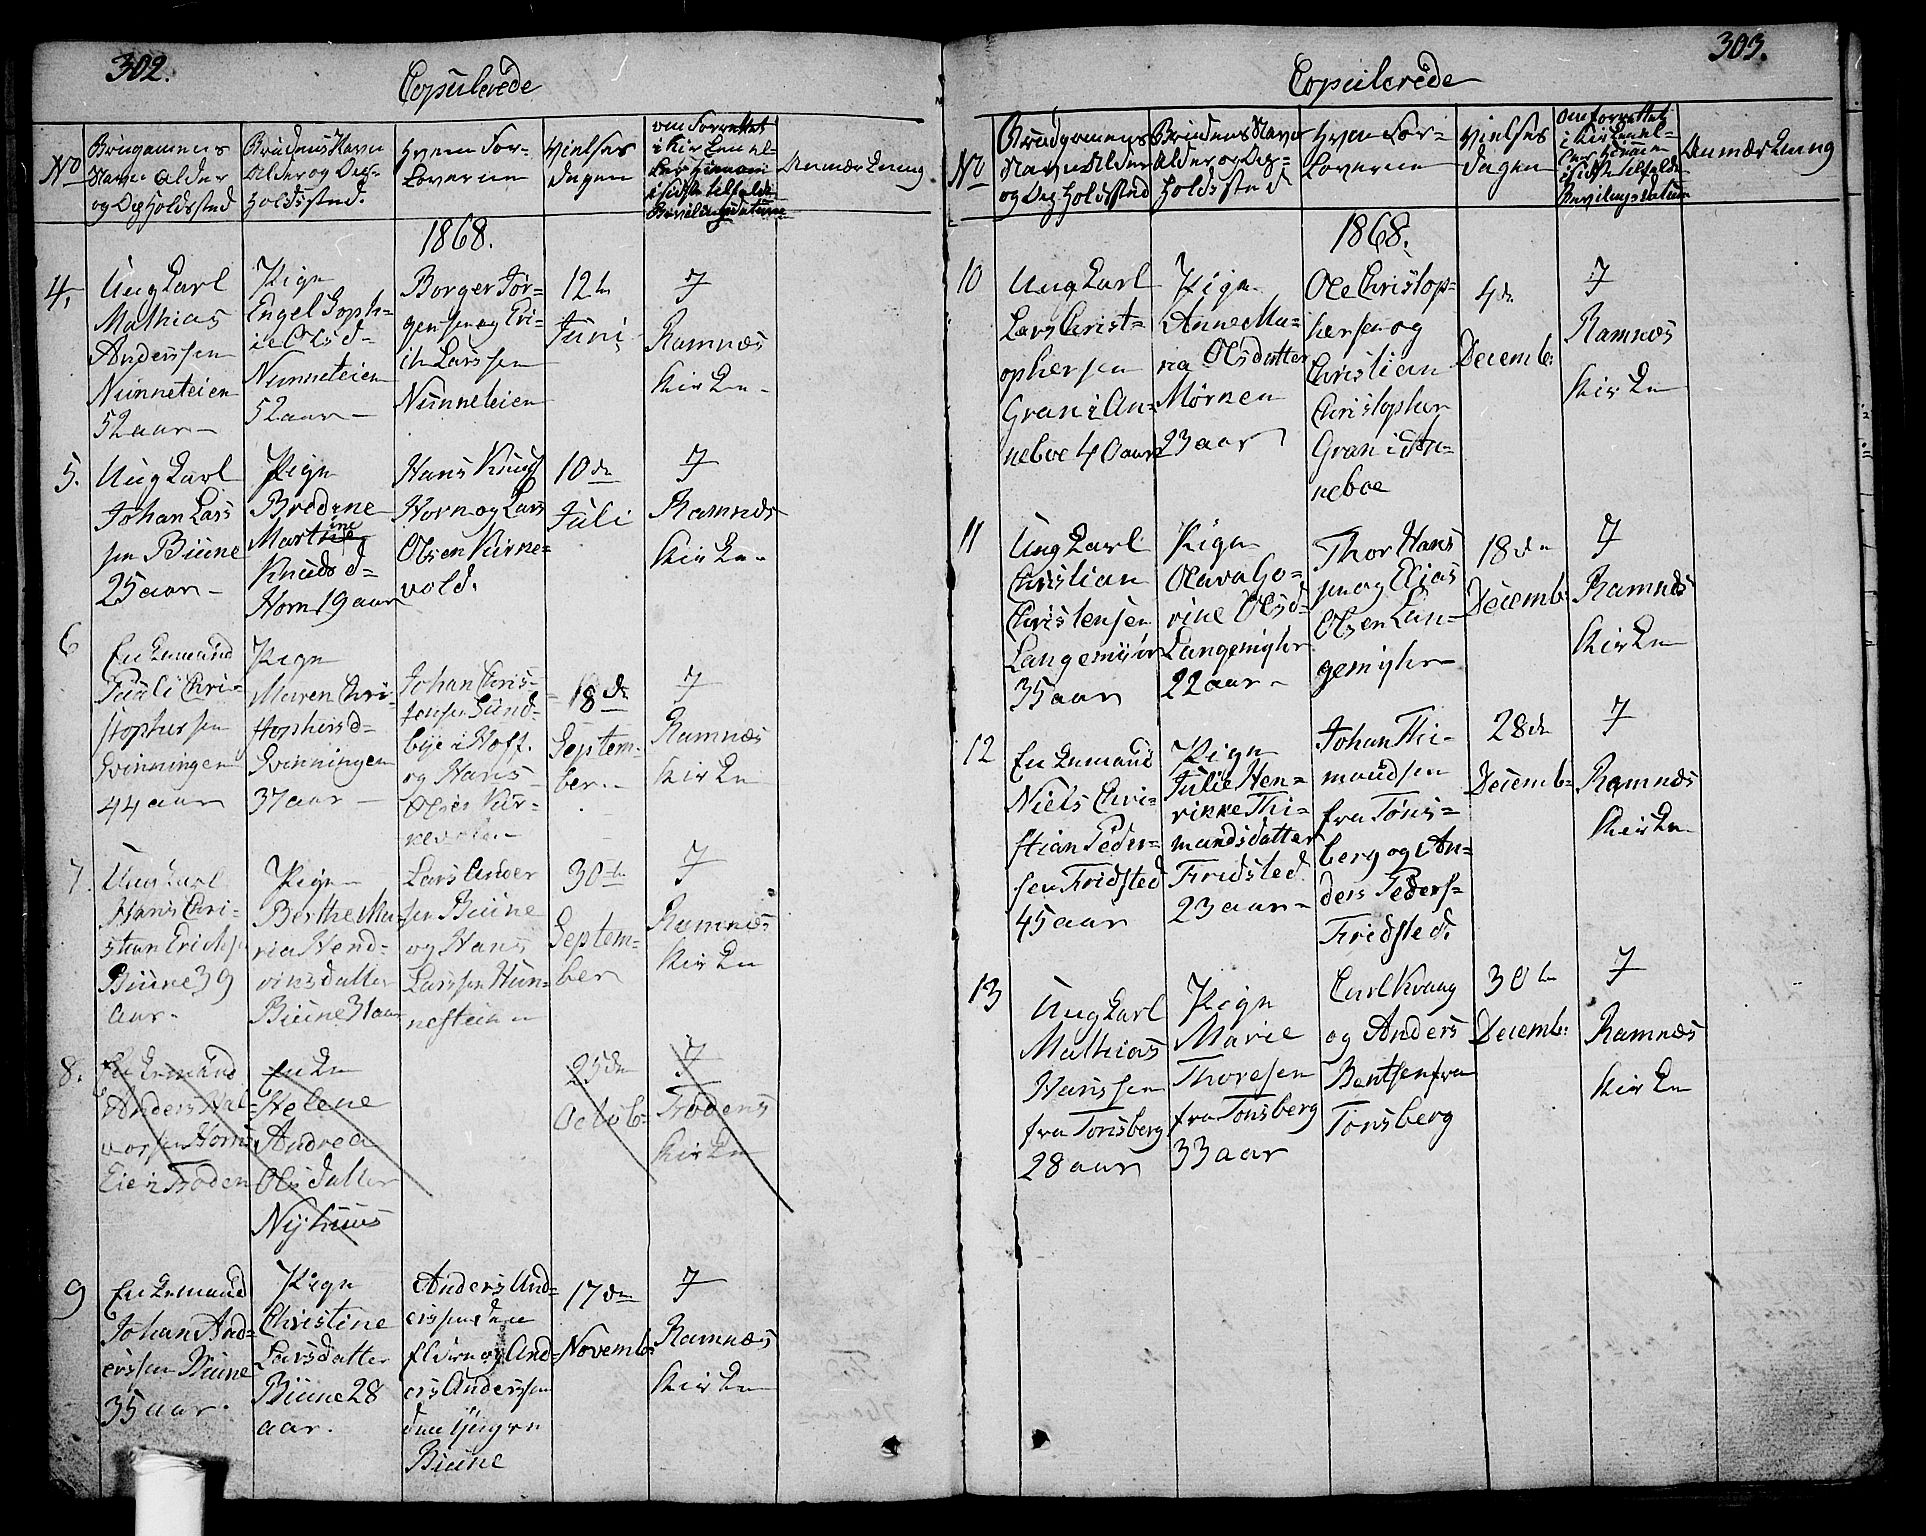 302.
Copulerede
No
Brugamens
Navn Alder
og Op Holdssted
Brudens Navn
Alder og Op-
holdssted.
Hvem For-
loverne
Vielses
dagen
om Forrettet
i Kirken el-
ler Hiemme
i sidste tilfælde
Bevilingsdatum
Anmærkning
1868.
4,
Ungkarl
Mathias
Anderssen
Nunneteien
52 aar –
Pige
Engel Soph-
ie Olsd-
Nunneteien
52 aar –
Borger Jør-
gensen og Eri-
ik Larssen
Nunneteien
12te
Juni
I
Ramnæs
Kirke –
5.
Ungkarl
Johan Lars
sen Biune
25 aar –
Pige
Bredine
Martine
Knuds d-
Horn 19 aar
Hans Knus
Horn og Lars
Olsen Kirke-
vold.
10de
Juli
I
Ramnæs
Kirke –
6
Enkemand
Pauli Chri-
stophersen
Svinningen
44 aar
Pige
Maren Chri-
stophersd-
Svinningen
37 aar –
Johan Chris-
tensen Sund-
bye i Hoff.
og Hans
Olsen Kir-
kevold –
18de
Septem-
ber. –
I
Ramnæs
Kirke
7.
Ungkarl
Hans Chri-
stian Erichs
Biune 39
aar –
Pige –
Berthe Ma-
ria Hend-
riksdatter
Biune 31 aar
Lars Ander
sen Biune
og Hans
Larssen Hun-
nestein –
30te
Septem-
ber
I
Ramnæs
Kirke
8.
Enkemand
Anders Hal-
vorsen Horns
Eie i Froden
Enke
Helene
Andrea
Ols datter
Nyhuus
25de
Octob:
I
Frodens
Kirke
9
Enkemand
Johan And-
erssen Biune
35 aar.
Pige
Christine
Larsdatter
Biune 28
aar.
Anders And-
erssen den
Eldre og And-
ers Anderssen
den Yngre
Biune
17de
Novemb:
I
Ramnæs
Kirke
303.
Copulerede
No
Brudgomens
Navn Alder
og Op Holdssted
Brudens Navn
Alder og Op-
Holdssted
Hvem For-
loverne
Vielses
dagen
om forrettet
i Kirken el-
ler Hiemme
i sidste tilfælde
Bevilingsdatum
Anmærkning
1868.
10
Ungkarl
Lars Christ-
ophersen
Gran i An-
neboe 40 aar
Pige
Anne Ma-
ria Olsdatter
Mørken
23 aar
Ole Christop-
hersen og
Christian
Christopher
Gran i An-
neboe
4de
Decemb:
I
Ramnæs
Kirke
11
Ungkarl
Christian
Christensen
Langemyhr
35 aar
Pige
Olava So-
rine Olsd-
Langemyhr
22 aar –
Thor Hans
sen og Elias
Olsen Lan-
gemyhr –
18de
Decemb:
I
Ramnæs
Kirke
12
Enkemand
Niels Chri-
stian Peder-
sen Fridsted
45 aar
Pige
Julie Hen-
rikke Thi-
mandsdatter
Fridsted
23 aar –
Johan Thi-
mandsen
fra Tøns-
berg og An-
ders Peders-
Fridsted.
28de
Decemb:
I
Ramnæs
Kirke
13
Ungkarl
Mathias
Hanssen
fra Tønsberg
28 aar
Pige
Marie
Thoresen
fra Tønsberg
33 aar
Carl Kraag
og Anders
Bentsen fra
Tønsberg
30te
Decemb:
I
Ramnæs
Kirke